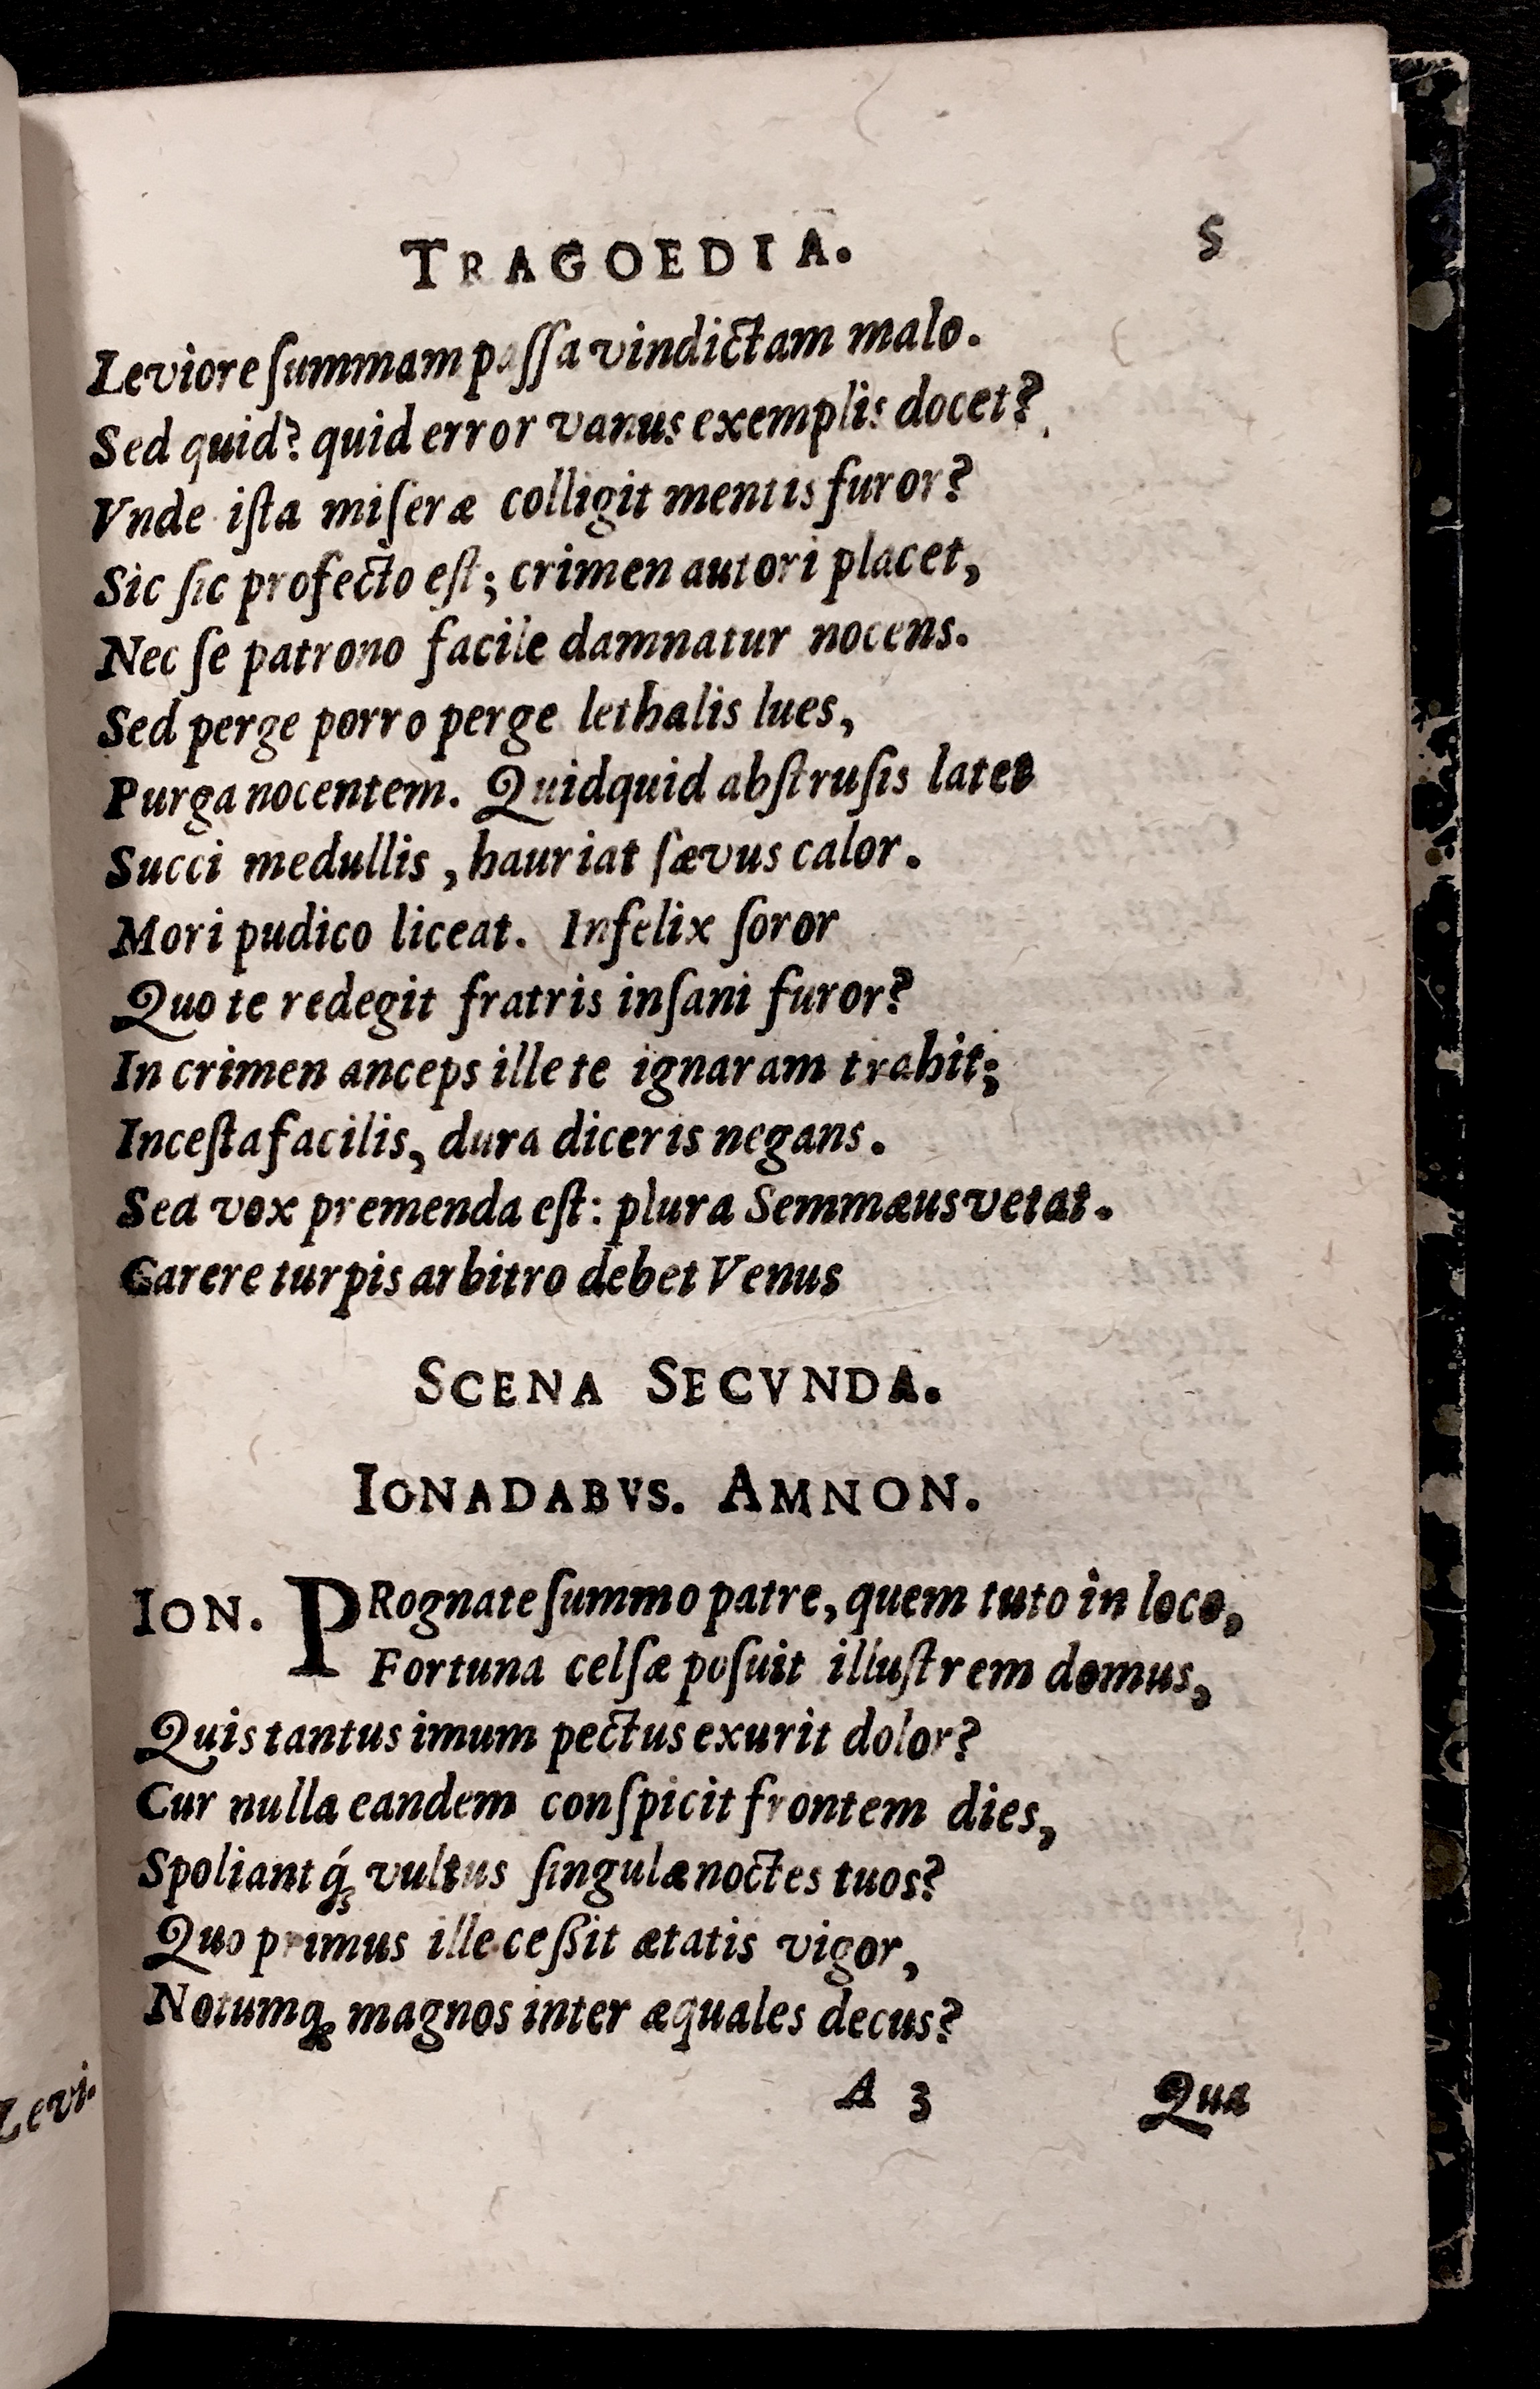 TRAGOEDIA. 5
Leviore ſummam paſſa vindictam malo.
Sed quid? quid error vanus exemplis docet?
Vnde iſta miſeræ colligit mentis furor?
Sic ſic profecto eſt; crimen autori placet,
Nec ſe patrono facile damnatur nocens.
Sed perge porro perge lethalis lues,
Purga nocentem. Quidquid abſtruſis latet
Succi medullis, hauriat ſævus calor.
Mori pudico liceat. Infelix ſoror
Quo te redegit fratris inſani furor?
In crimen anceps ille te ignaram trahit;
Inceſta facilis, dura diceris negans.
Sed vox premenda eſt: plura Semmæus vetat.
Carere turpis arbitro debet Venus
SCENA SECVNDA.
IONADABVS. AMNON.
ION. PRognate ſummo patre, quem tuto in loco,
Fortuna celſæ poſuit illuſtrem domus,
Quis tantus imum pectus exurit dolor?
Cur nulla eandem conſpicit frontem dies,
Spoliantq́; vultus ſingulæ noctes tuos?
Quo primus ille ceſſit ætatis vigor,
Notumq; magnos inter æquales decus?
A 3 Qua
Levi-